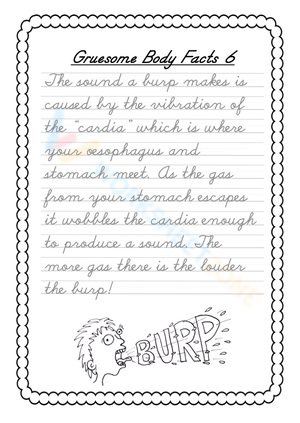 Gruesome Body Facts 6
The sound a burp makes is
caused by the vibration of
the "cardia" which is where
your oesophagus and
stomach meet. As the gas
from your stomach escapes
it wobbbles the cardia enough
to produce a sound. The
more gas there is the louder
the burp!
BURP